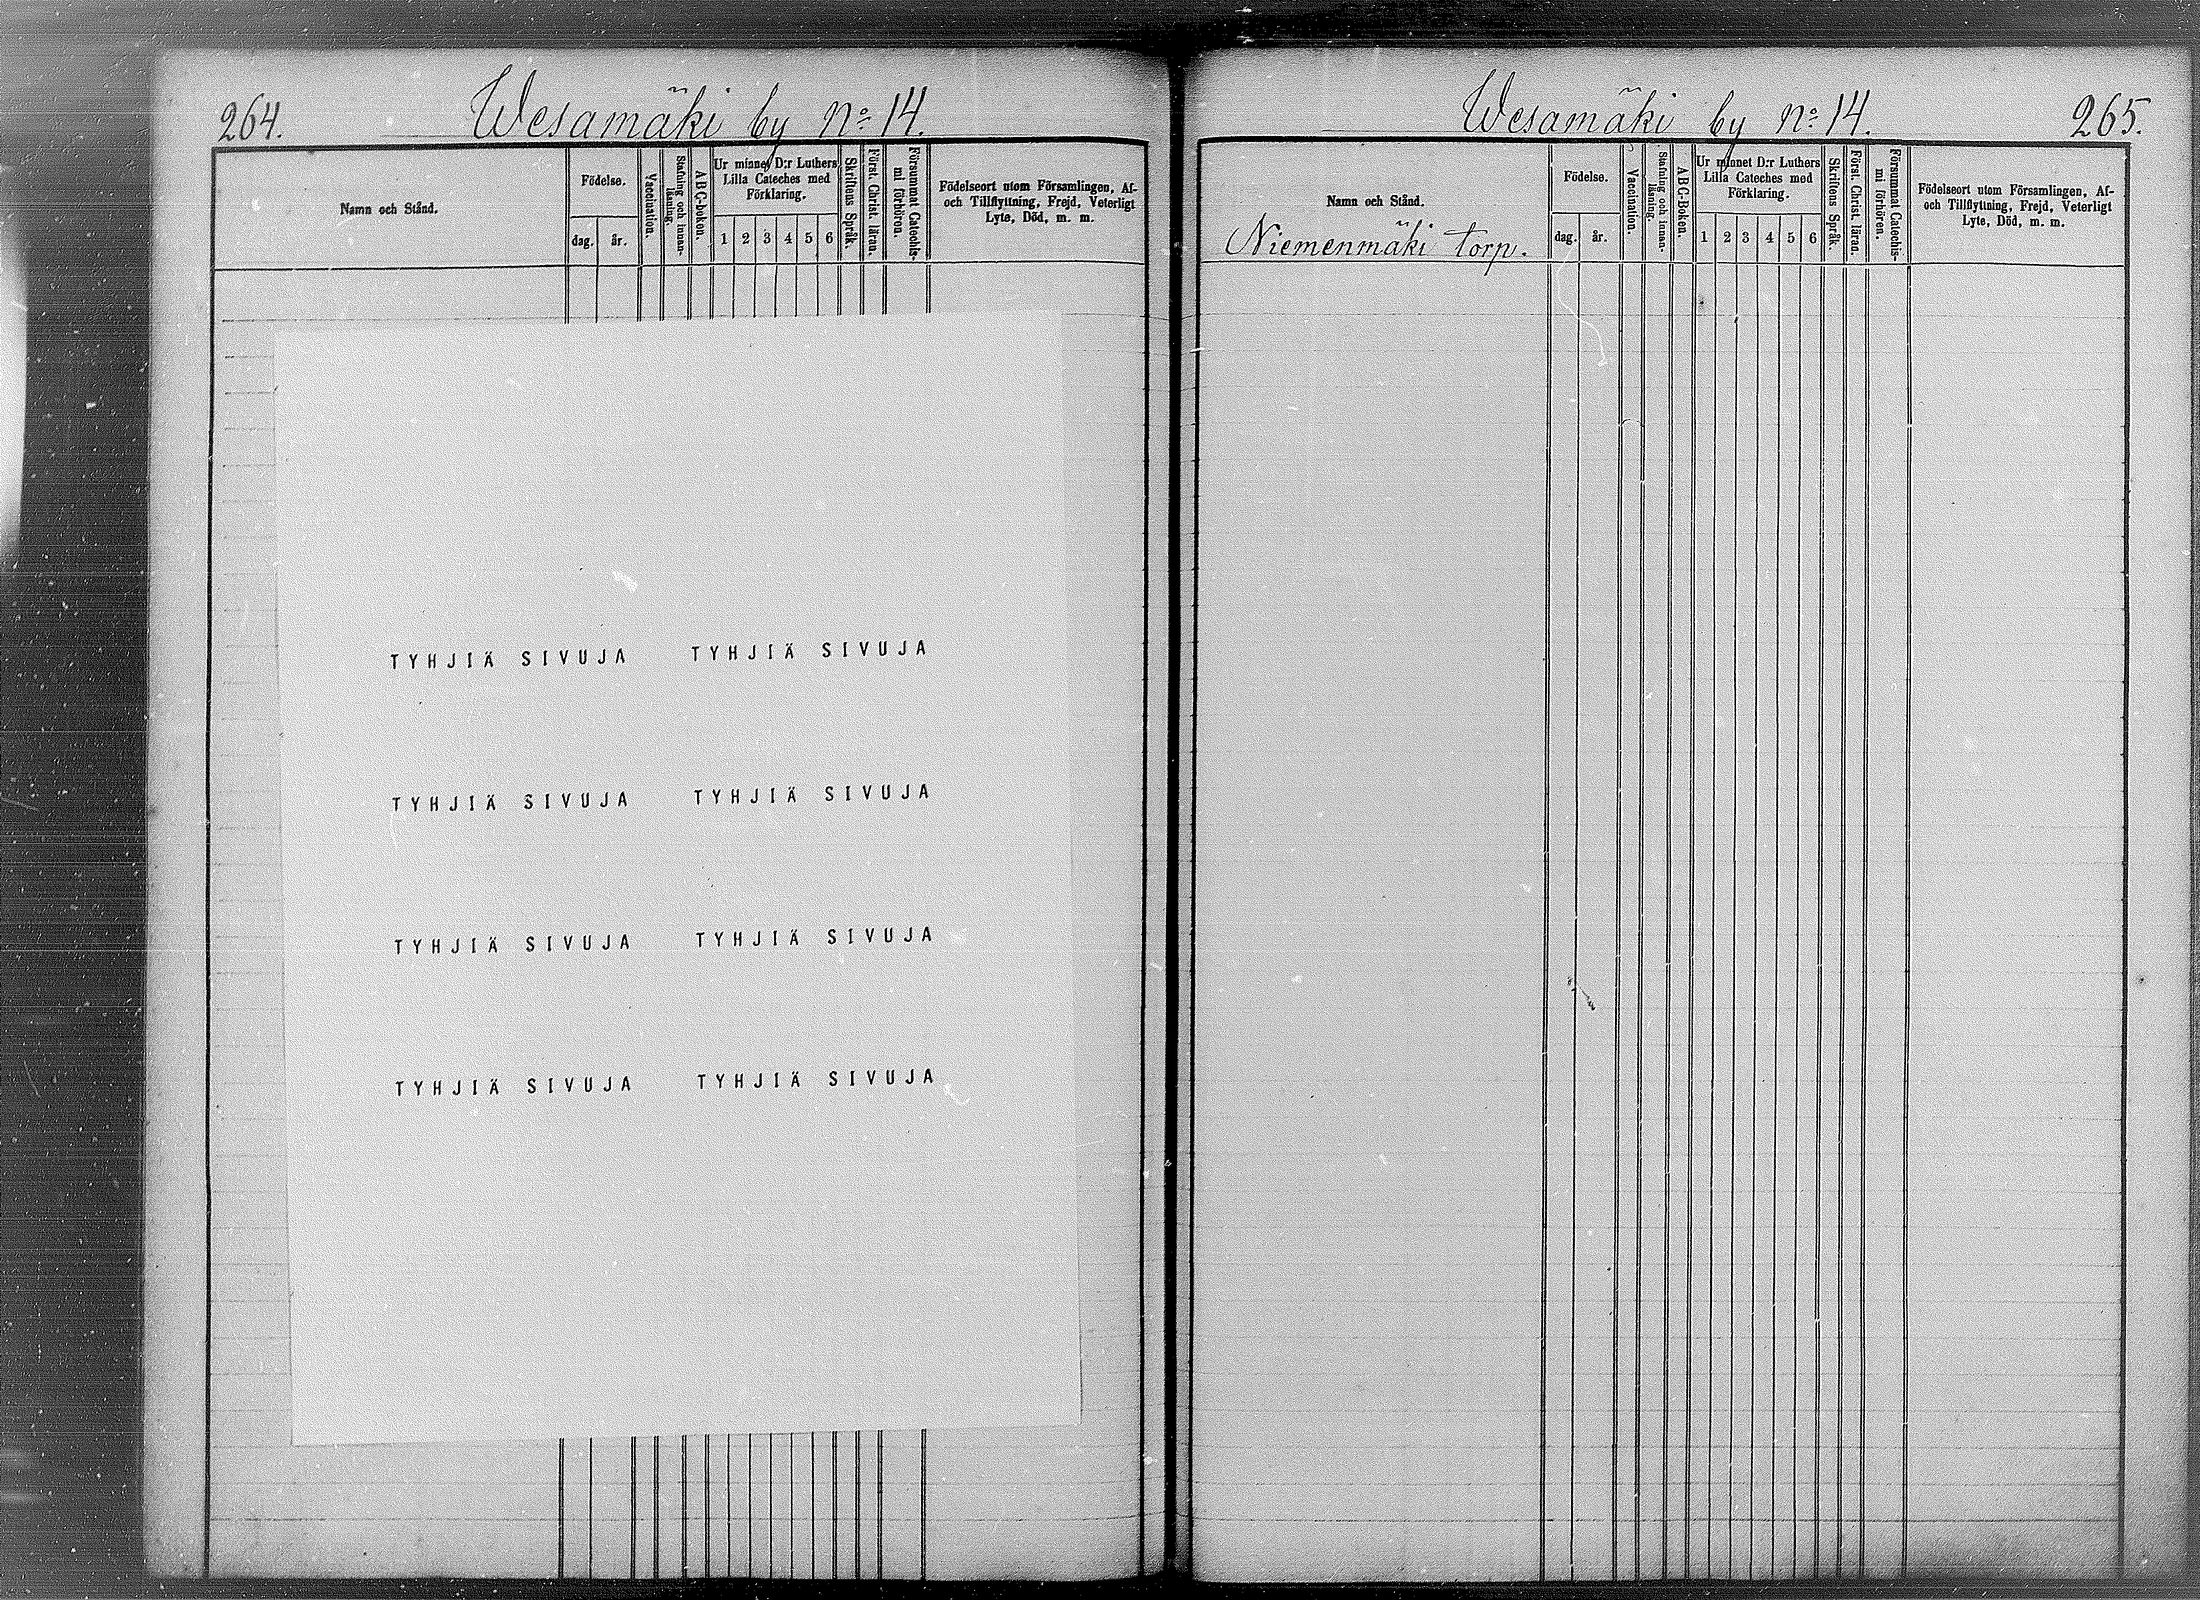 264.
Wesamäki by No 14.
Namn och Stånd.
Födelse.
dag.
år.
Vaccination.
Stafning och innan-
läsning.
ABC-boken.
Ur minnet D:r Luthers
Lilla Cateches med
Förklaring.
1 2 3 4 5 6
Skriftens Språk.
Först. Christ. läran.
Försummat Catechis-
mi förhören.
Födelseort utom Församlingen, Af-
och Tillflyttning, Frejd, Veterligt
Lyte, Död, m. m.
TYHJIÄ SIVUJA TYHJIÄ SIVUJA
TYHJIÄ SIVUJA TYHJIÄ SIVUJA
TYHJIÄ SIVUJA TYHJIÄ SIVUJA
TYHJIÄ SIVUJA TYHJIÄ SIVUJA
Wesamäki by No 14.
265.
Namn och Stånd.
Niemenmäki torp.
Födelse.
dag.
år.
Vaccination.
Stafning och innan-
läsning.
ABC-Boken.
Ur minnet D:r Luthers
Lilla Cateches med
Förklaring.
1 2 3 4 5 6
Skriftens Språk.
Först. Christ. läran.
Försummat Catechis-
mi förhören.
Födelseort utom Församlingen, Af-
och Tillflyttning, Frejd, Veterligt
Lyte, Död, m. m.